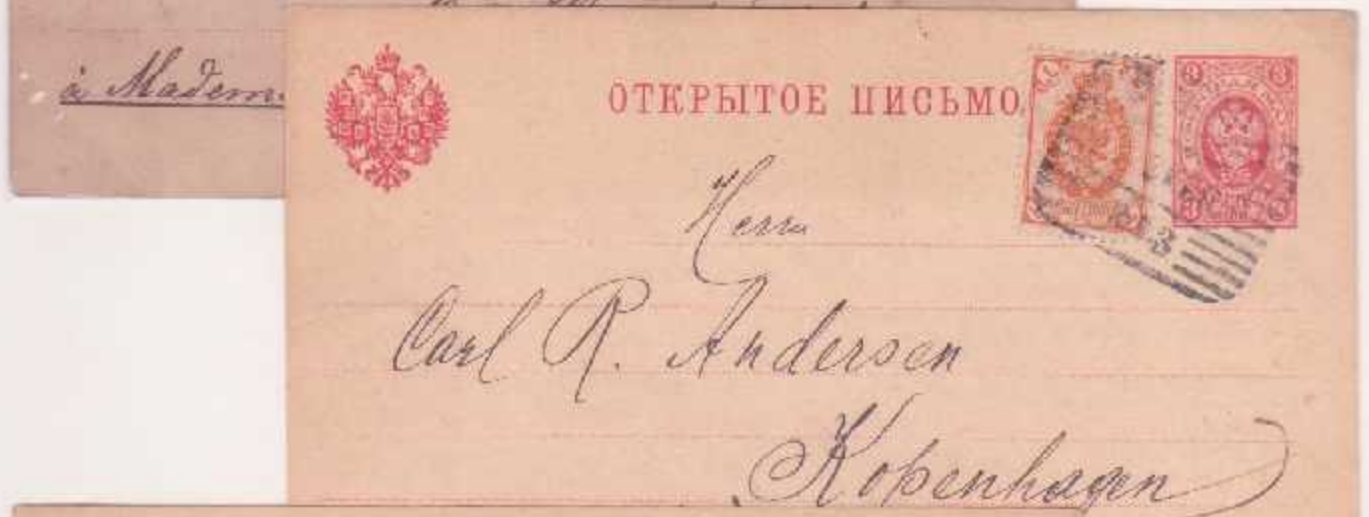 à Madem
ОТКРЫТОЕ ПИСЬМО
Herrn
Carl R. Andersen
Kopenhagen